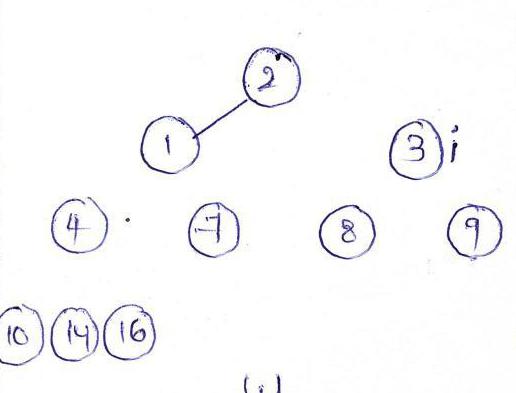 2
1 3 i
4 7 8 9
10 14 16
(i)